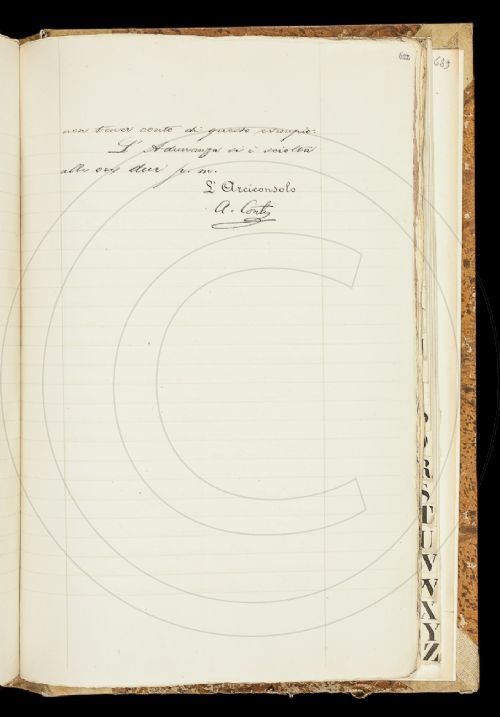 689
non tener conto di questo esempio.
L'Adunanza si è sciolta
alle ore due p. m.
L'Arciconsolo
A. Conti
R
S
T
U
V
W
X
Y
Z